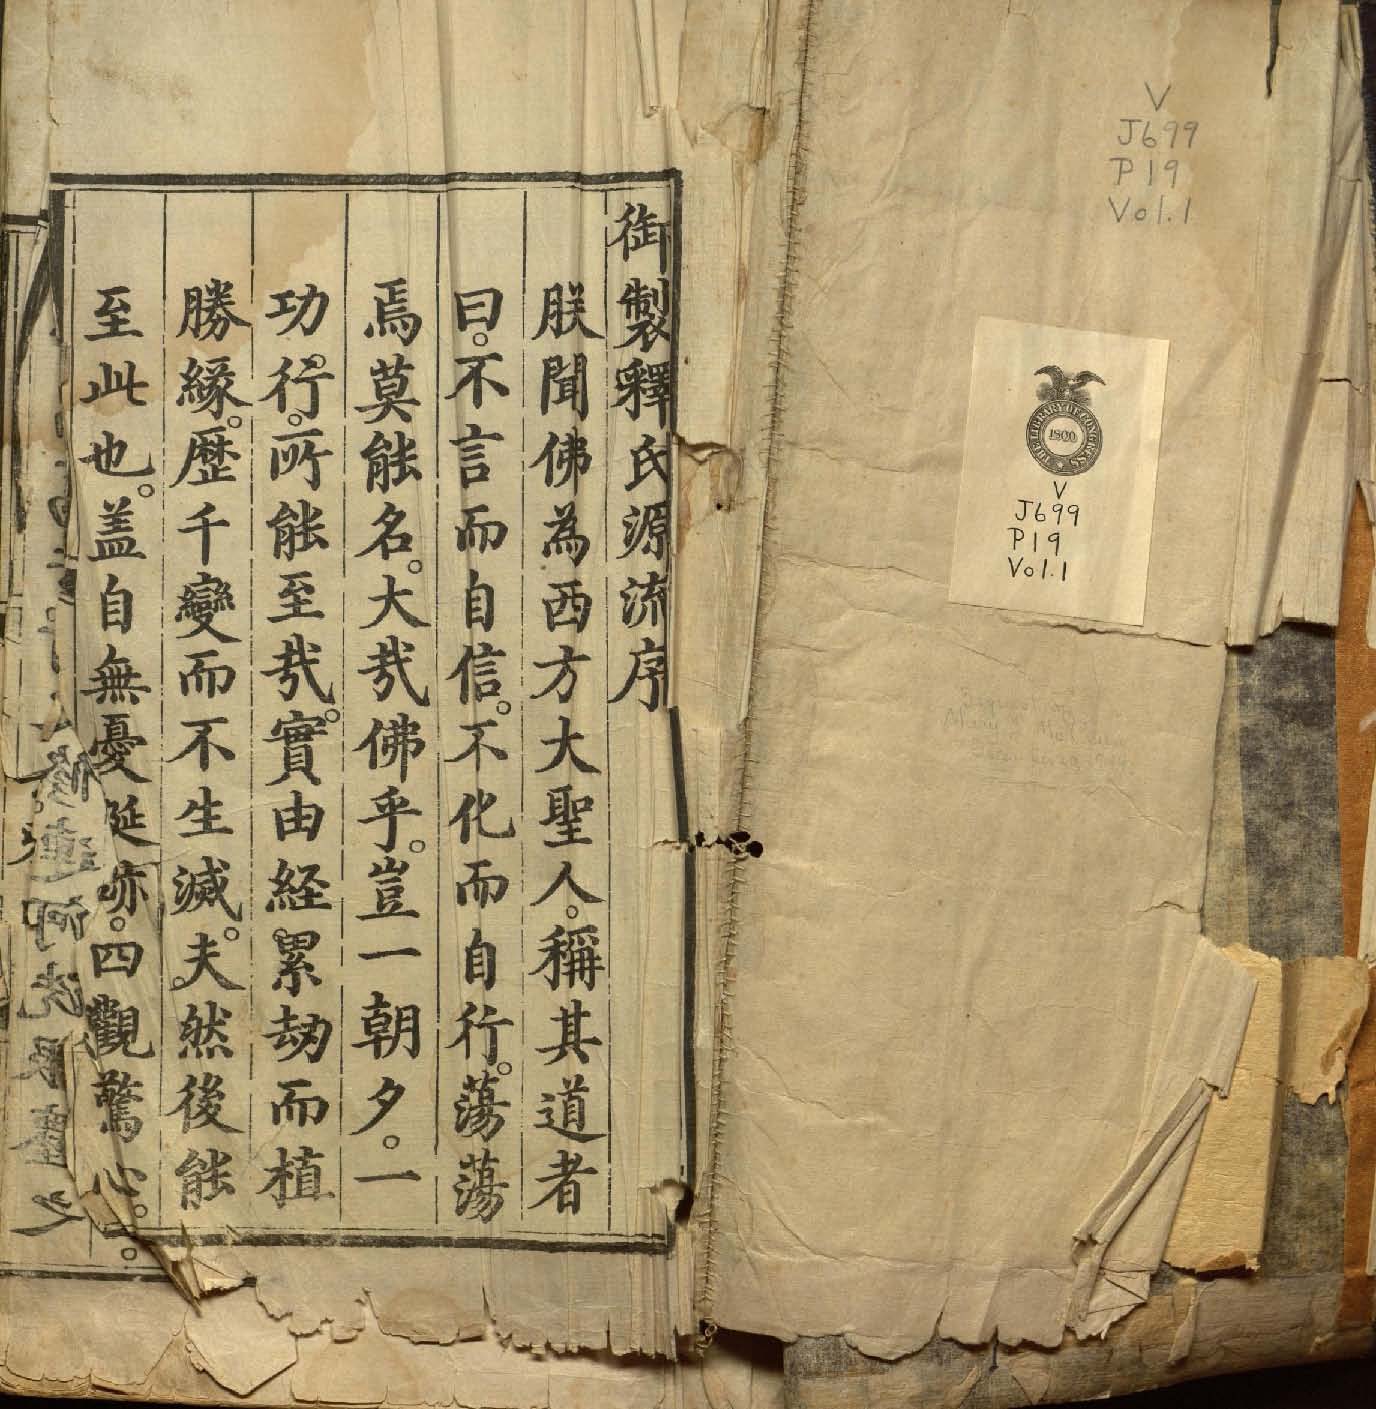 V
J699
P19
Vol.1
THE LIBRARY OF CONGRESS
1800
V
J699
P19
Vol.1
御製釋氏源流序
朕聞佛為西方大聖人。稱其道者
曰。不言而自信。不化而自行。蕩蕩
焉莫能名。大㢤佛乎。豈一朝夕。一
功。行。所能至㢤。實由経。累劫而植
勝緣。歷千變而不生滅。夫。然後能
至此也。盖自無憂 跡。四觀驚心。。